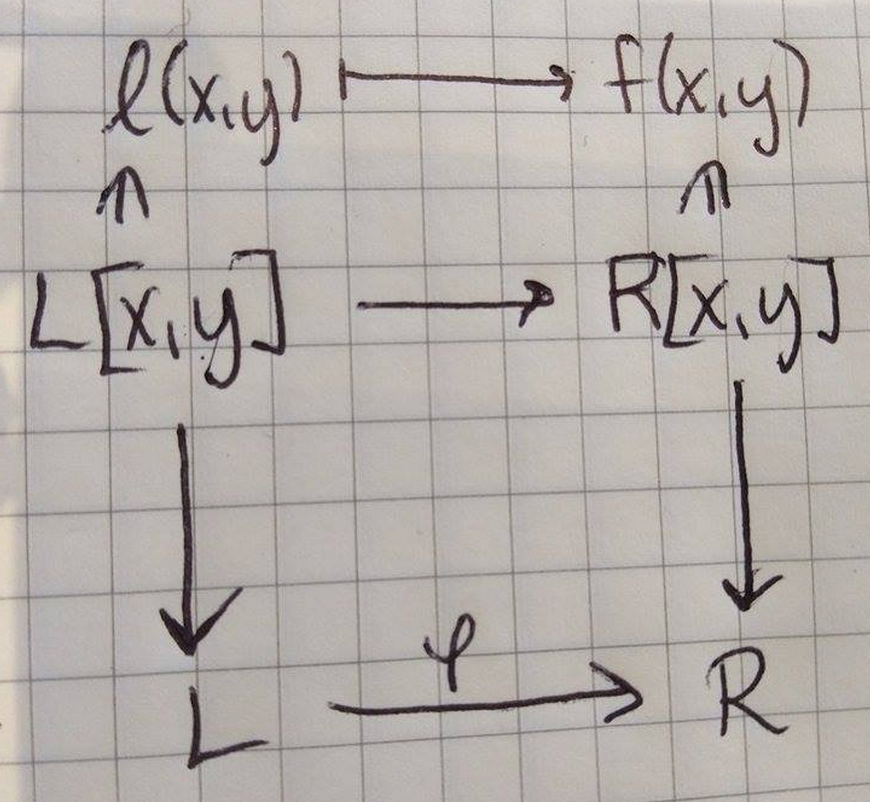 ℓ(x,y) ↦ f(x,y)
L[x,y] → R[x,y]
φ
L → R